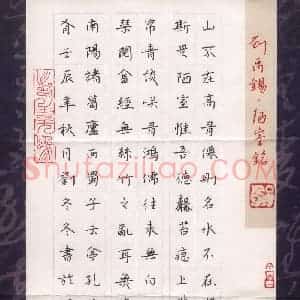 劉禹錫·陋室銘
山不在高有僊則名水不在
斯是陋室惟吾德馨苔痕上
帘青談笑有鴻儒往來無白
琴閱金經無絲竹之亂耳無
南陽諸葛廬西蜀子雲亭孔
壬辰年秋月劉冬冬書於